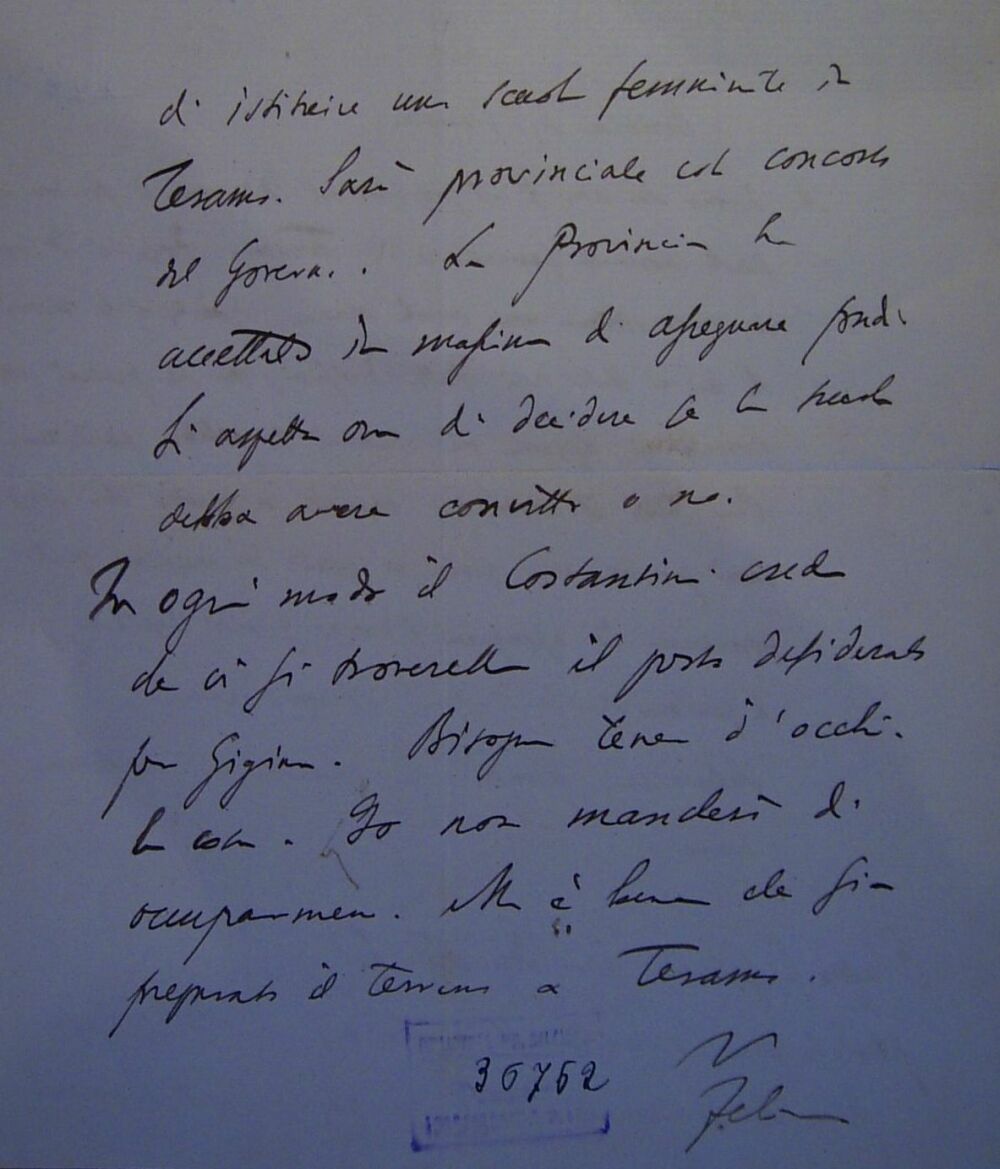 di istituire una scuola femminile in
Teramo. Sarà provinciale col concorso
del Governo. La Provincia ha
accettato in massima di assegnare fondi.
Si aspetta ora di decidere se la scuola
debba avere convitto o no.
In ogni modo il Costantini crede
che ci si troverebbe il posto desiderato
per Gigina. Bisogna tener d'occhio
la cosa. Io non mancherò di
occuparmene. Ma è bene che sia
preparato il terreno a Teramo.
36762